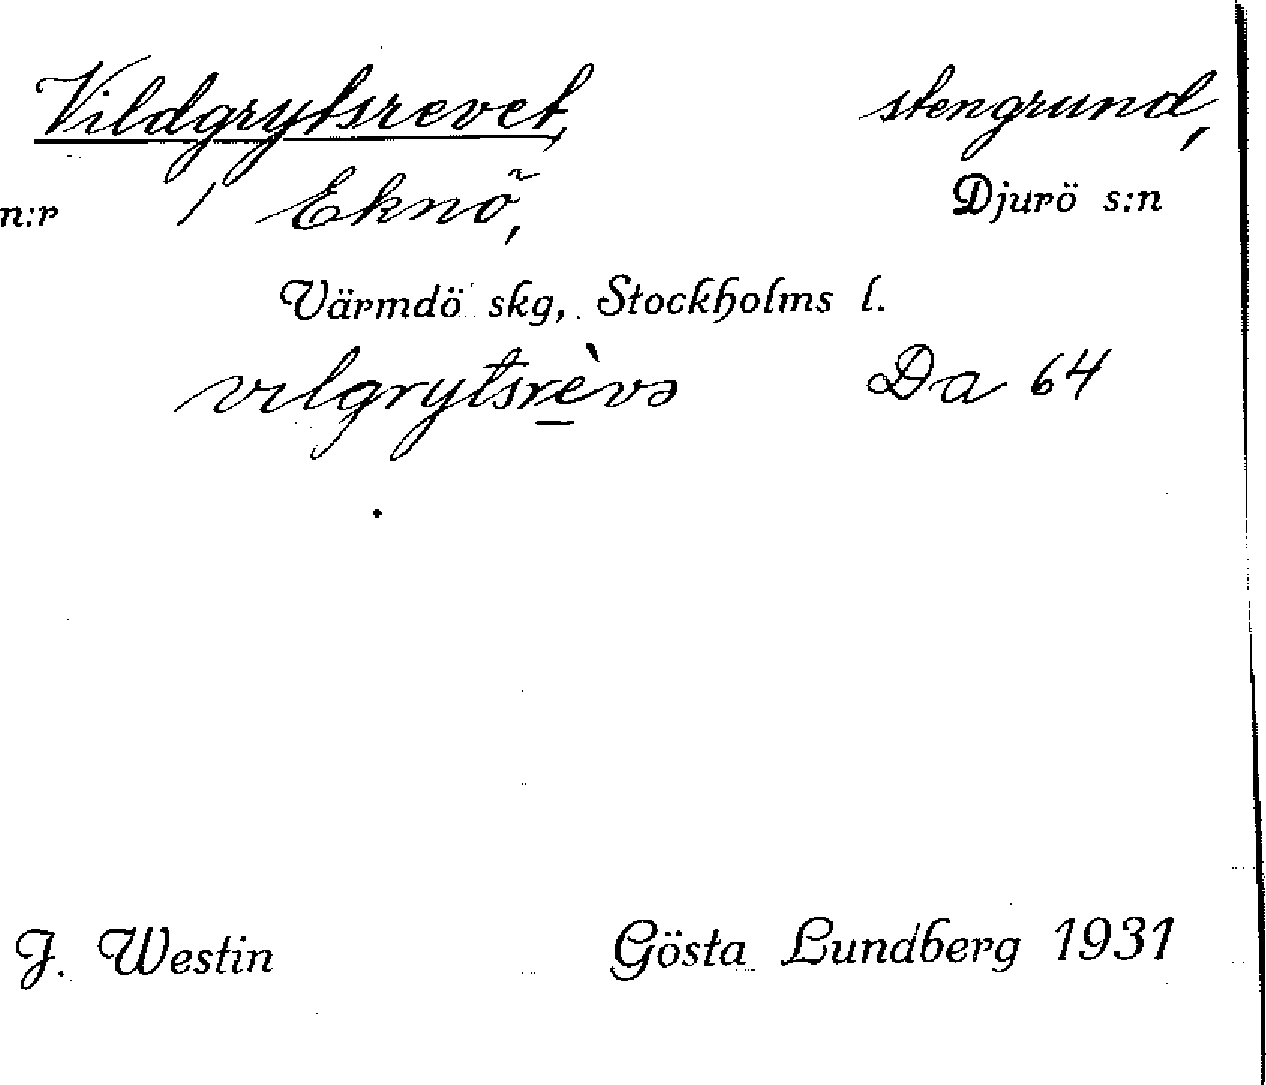 Vildgrytsrevet, stengrund,
n:r / Eknö, Djurö s:n
Värmdö skg, Stockholms l.
vɩlgrytsrèvə Da 64
J. Westin Gösta Lundberg 1931